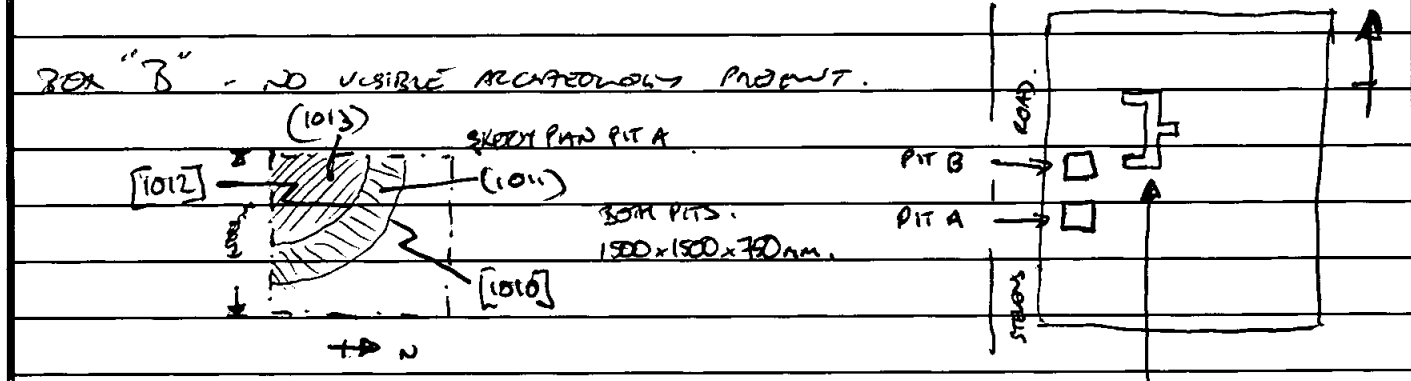 BOX "B" - NO VISIBLE ARCHAEOLOGY PRESENT.
(1013)
SKETCH PLAN PIT A
[1012]
(1011)
BOTH PITS.
1500 x 1500 x 750mm.
[1010]
N
ROAD.
STEVENS
PIT B
PIT A